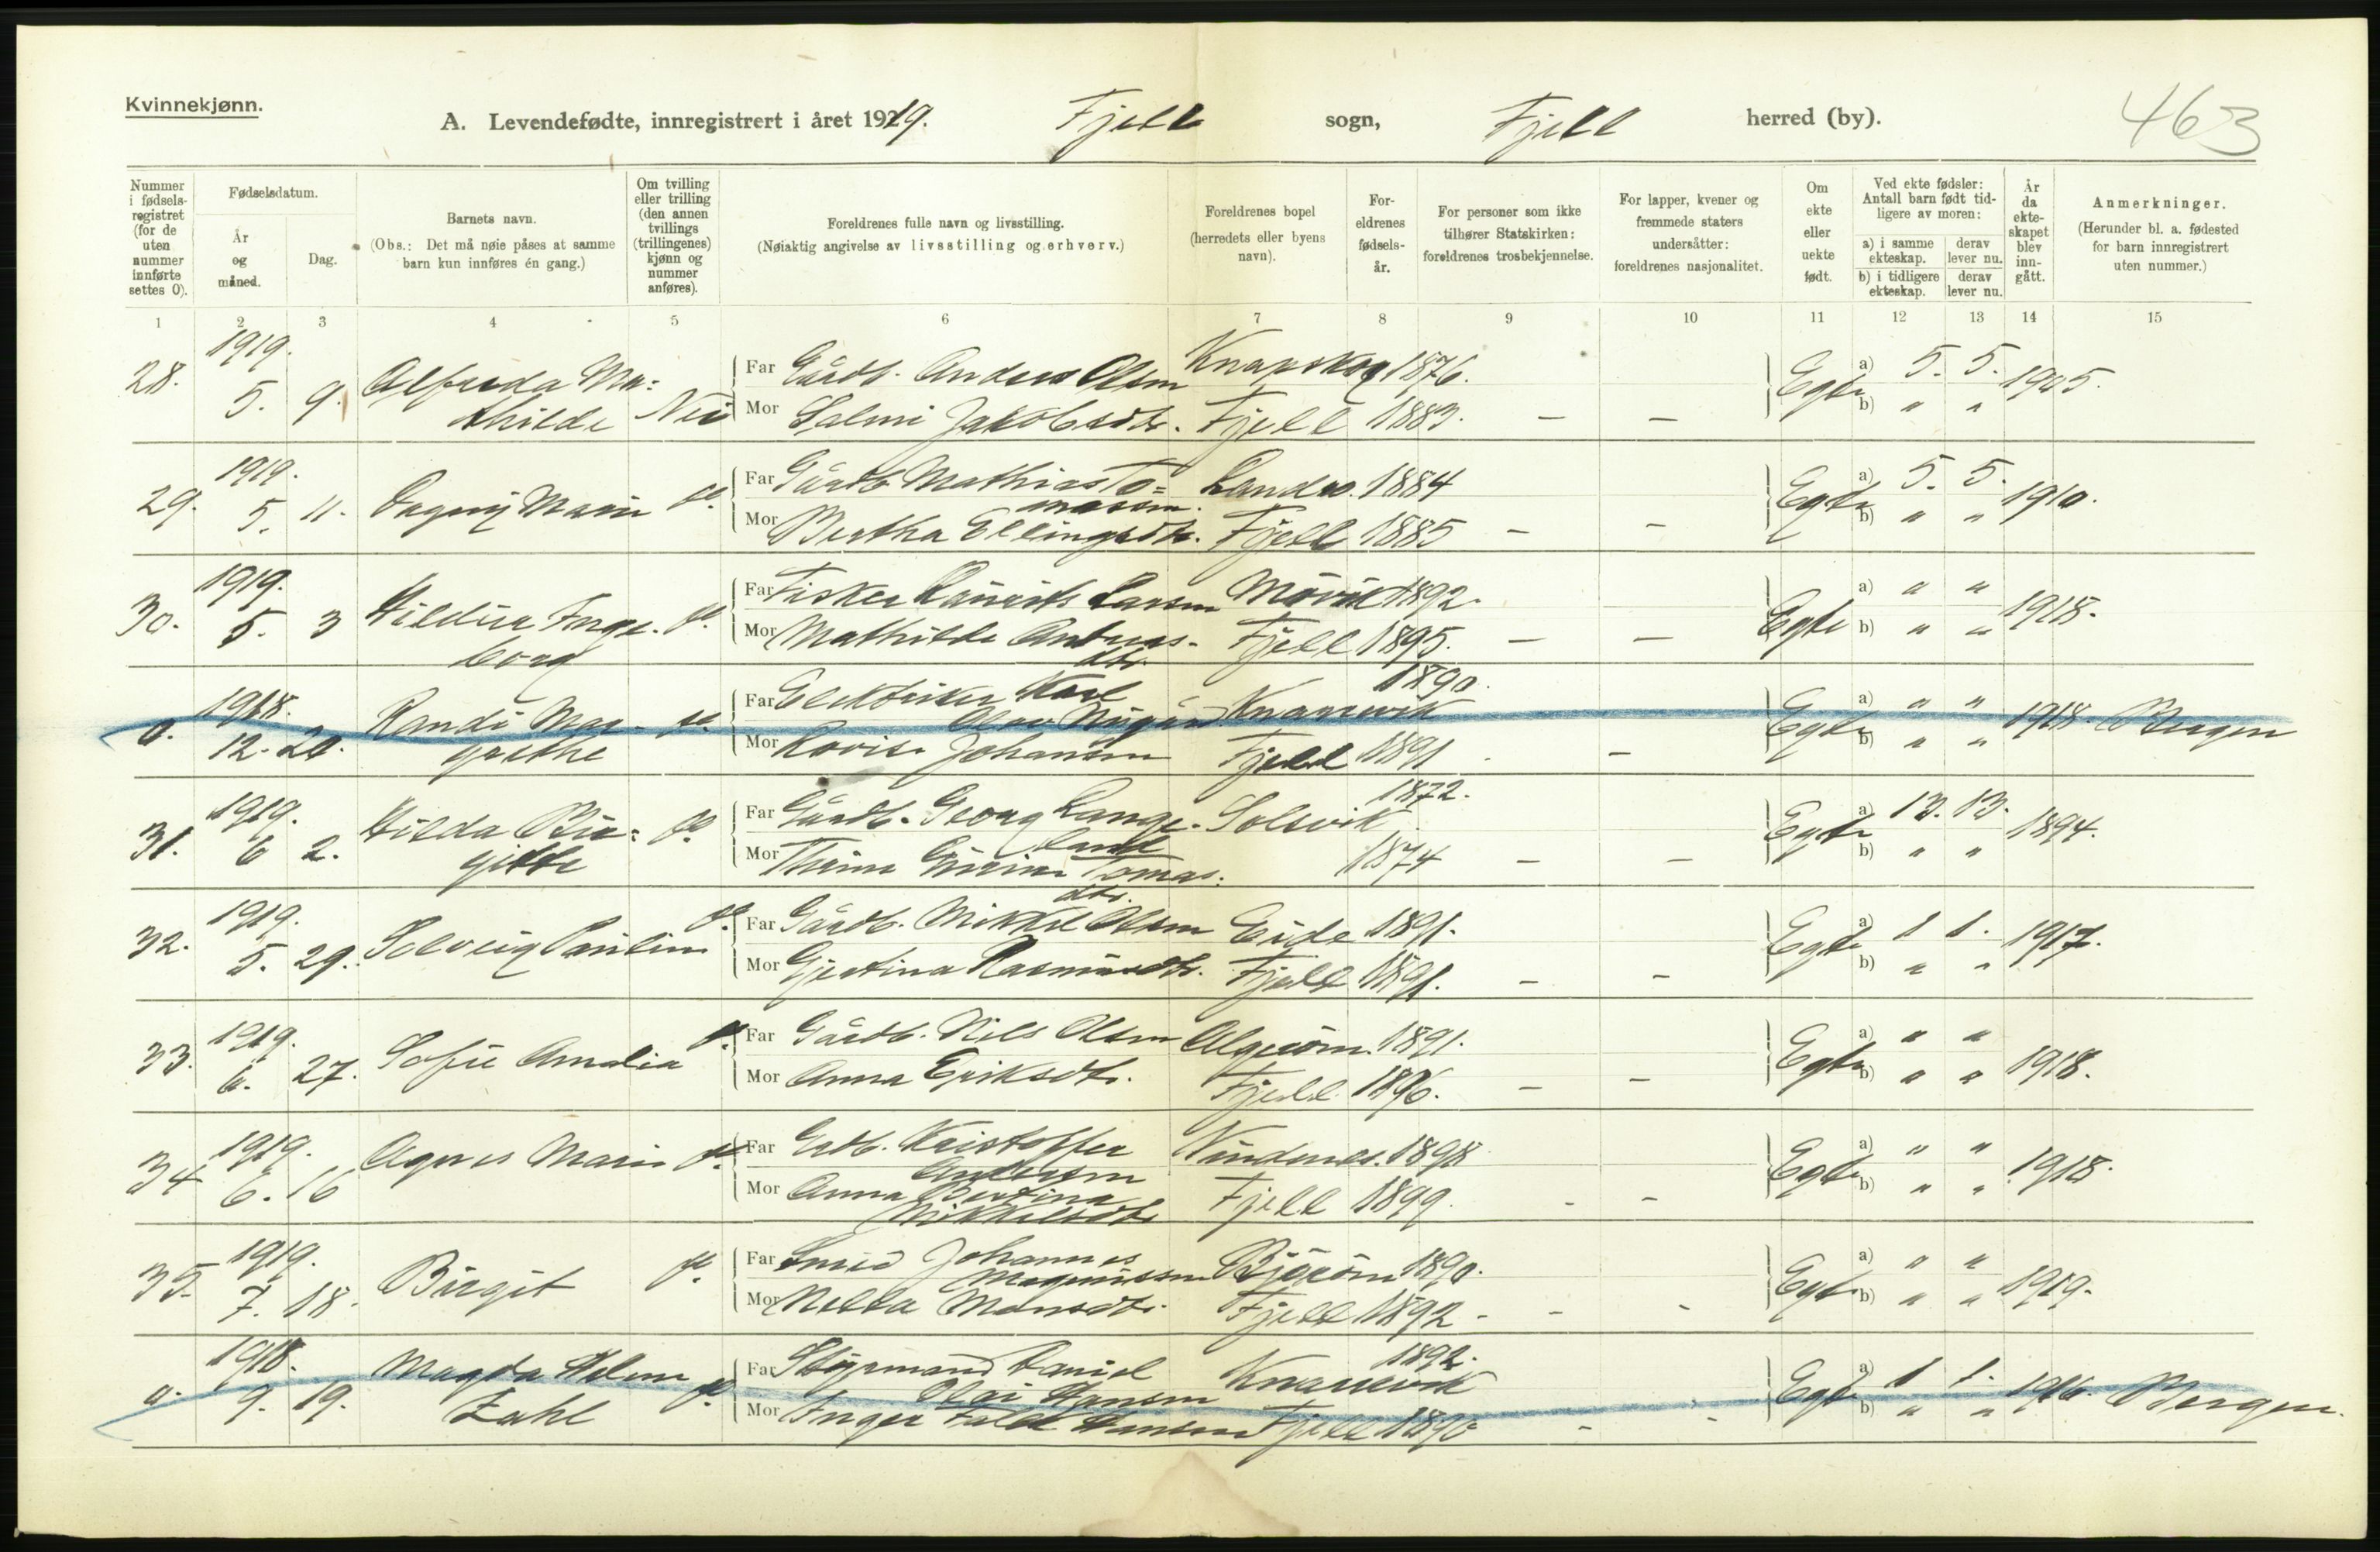 Kvinnekjønn.
A. Levendefødte, innregistrert i året 1919. Fjell sogn, Fjell herred (by). 463
Nummer i fødsels-registret (for de uten nummer innførte settes 0).
Fødselsdatum.
År og måned.
Dag.
Barnets navn.
(Obs.: Det må nøie påses at samme barn kun innføres én gang.)
Om tvilling eller trilling (den annen tvillings (trillingenes) kjønn og nummer anføres).
Foreldrenes fulle navn og livsstilling.
(Nøiaktig angivelse av livsstilling og erhverv.)
Foreldrenes bopel (herredets eller byens navn).
For-eldrenes fødsels-år.
For personer som ikke tilhører Statskirken: foreldrenes trosbekjennelse.
For lapper, kvener og fremmede staters undersåtter: foreldrenes nasjonalitet.
Om ekte eller uekte født.
Ved ekte fødsler: Antall barn født tid-ligere av moren:
a) i samme ekteskap. derav lever nu.
b) i tidligere ekteskap. derav lever nu.
År da ekte-skapet blev inn-gått.
Anmerkninger.
(Herunder bl. a. fødested for barn innregistrert uten nummer.)
1 2 3 4 5 6 7 8 9 10 11 12 13 14 15
1919.
28. 5. 9. Alfreda Ma= Far Gårdb. Anders Olsen Knapskog 1876. Egte a) 5. 5. 1905.
thilde Nei Mor Salmi Jakobsdtr. Fjell 1883. — — b) " "
1919.
29. 5. 11. Dagny Marie do. Far Gårdb. Mathias To= Landro. 1884 Egte a) 5. 5. 1910.
massen.
Mor Bertha Ellingsdtr. Fjell 1885 — — b) " "
1919.
30. 5. 3 Hildur Inge- do. Far Fisker Laurits Larsen Møvik 1892. Egte a) " " 1918.
borg Mor Mathilde Andreas- Fjell 1895. — — b) " "
dtr.
1918. 1890.
0. 12. 20. Randi Mar- do. Far Elektriker Karl Knarrevik Egte a) " " 1918. Bergen
Olav Nygård
grethe Mor Lovise Johansen Fjell 1891 - — b) " "
1919. 1872.
31. 6 2. Hilda Bir= do. Far Gårdb. Georg Lange- Solsvik Egte a) 13. 13. 1894.
land
gitte Mor Tomas. 1874 — — b) " "
dtr.
1919.
32. 5. 29. Solveig Pauline do. Far Gårdb. Mikkel Olsen Eide 1891. Egte a) 1 1. 1917.
Mor Gjertina Rasmusdtr. Fjell 1891. — — b) " "
1919.
33. 6. 27. Sofie Amalia do. Far Gårdb. Nils Olsen Algerøen. 1891. Egte a) " " 1918.
Mor Anna Eriksdtr. Fjell 1896. — — b) " "
1919.
34 6. 16 Agnes Marie do. Far Grdb. Kristoffer 1898 Egte a) " " 1918.
Andersen
Mor Anna Bertina Fjell 1899. - — b) " "
Mikkelsdtr
1919.
35. 7. 18. Birgit do. Far Smed Johannes Bjørøen 1890. Egte a) " " 1919.
Magnussen
Mor Monsdtr. Fjell 1892 - - - b) " "
1918. 1892.
0. 9. 19. Magda Helene do. Far Styrmand Daniel Knarrevik Egte a) 1 1. 1916. Bergen.
Olai Hansen
Zahl Mor Inger Hansen Fjell 1890 - - b) " "